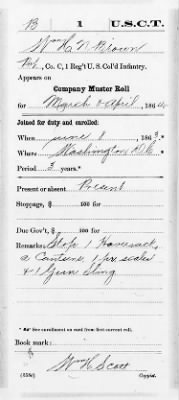 B | 1 | U.S.C.T.
Wm H N Brown
Pvt, Co. C, 1 Reg't U. S. Col'd Infantry.
Appears on
Company Muster Roll
for March & April, 1864.
Joined for duty and enrolled:
When June 8, 1863.
Where Washington D.C.
Period 3 years.*
Present or absent Present
Stoppage, $ 100 for
Due Gov't, $ 100 for
Remarks: Stop 1 Haversack,
a Canteene, 1 pr scales
& 1 Gun Sling
* See enrollment on card from first current roll.
Book mark:
Wm H Scott
(358c) Copyist.